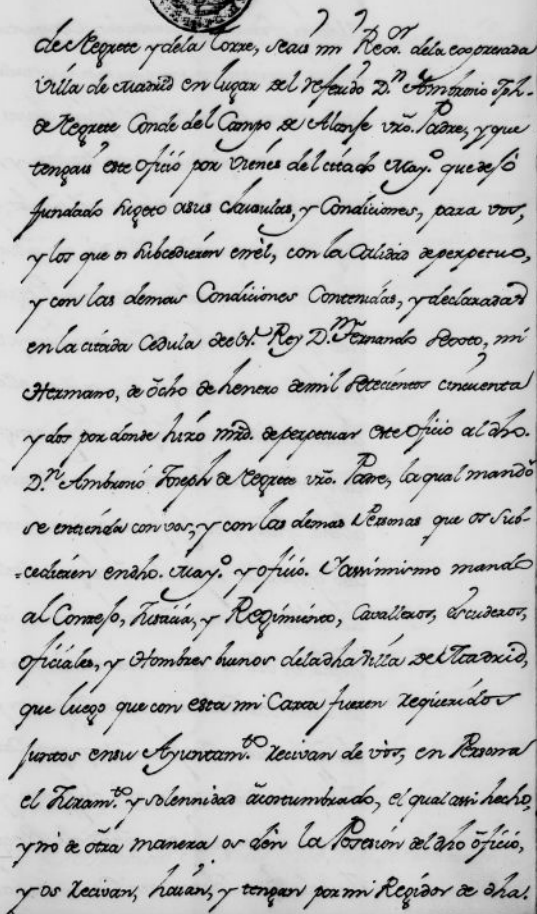 de Negrete y dela Torre, seais mi Reg.or dela expresada
Villa de Madrid en lugar del referido D.n Ambrosio Jph.
de Negrete Conde del Campo de Alanje vro. Padre, y que
tengais este Oficio por Vienes del citado May.o que dejó
fundado sugeto asus clausulas, y Condiciones, para vos,
y los que os subcedieren en èl, con la Calidad de perpetuo,
y con las demas Condiciones Contenidas, y declaradas
en la citada Cedula del Sr. Rey D.n Fernando Sexto, mi
Hermano, de ocho de henero de mil setecientos cincuenta
y dos por donde hizo mrd. de perpetuar este Oficio al dho.
D.n Ambrosio Joseph de Negrete vro. Padre, la qual mandò
se entienda con vos, y con las demas Personas que os Sub-
-cedieren en dho. May.o y oficio. Y assimismo mando
al Consejo, Justicia, y Regimiento, Cavalleros, escuderos,
oficiales, y Hombres buenos dela dha Villa de Madrid,
que luego que con esta mi Carta fueren requeridos
juntos en su Ayuntam.to recivan de vòs, en Persona
el Juram.to y solennidad acostumbrado, el qual assi hecho,
y nò de otra manera os dèn la Posesion del dho oficio,
y os recivan, haian, y tengan por mi Regidor de dha.